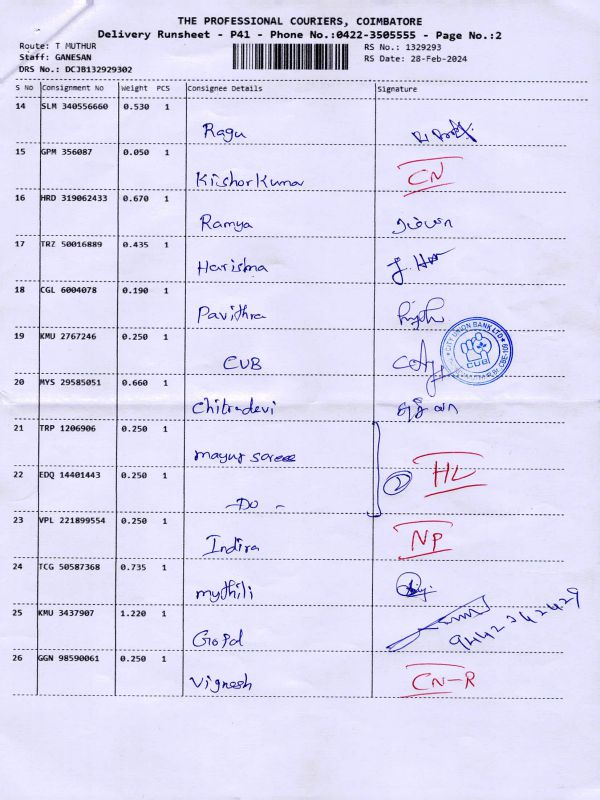 THE PROFESSIONAL COURIERS, COIMBATORE
Delivery Runsheet - P41 - Phone No.:0422-3505555 - Page No.:2
Route: T MUTHUR
Staff: GANESAN
DRS No.: DCJB132929302
RS No.: 1329293
RS Date: 28-Feb-2024
S No Consignment No Weight PCS Consignee Details Signature
14 SLM 340556660 0.530 1
Ragu
15 GPM 356087 0.050 1
Kishor Kumar CN
16 HRD 319062433 0.670 1
Ramya
17 TRZ 50016889 0.435 1
Harisma
18 CGL 6004078 0.190 1
Pavithra
19 KMU 2767246 0.250 1
CUB
CITY UNION BANK LTD
CUB
20 MYS 29585051 0.660 1
Chitradevi
21 TRP 1206906 0.250 1
mayur saree
22 EDQ 14401443 0.250 1
2 HL
-Do-
23 VPL 221899554 0.250 1
Indira NP
24 TCG 50587368 0.735 1
mythili
25 KMU 3437907 1.220 1
Gopal
26 GGN 98590061 0.250 1
Vignesh CN-R